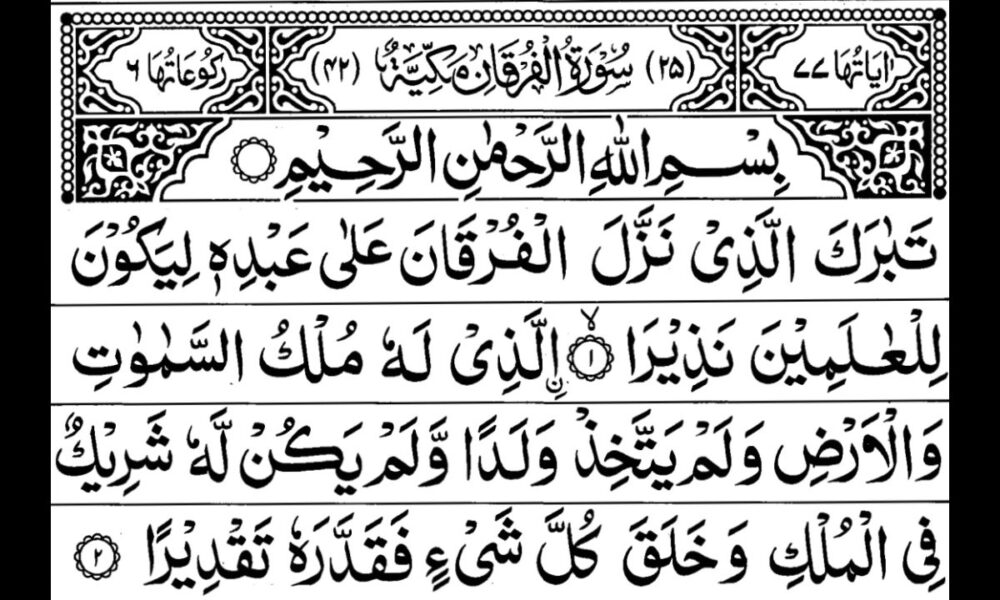 اٰيَاتُهَا ٧٧ (٢٥) سُوْرَةُ الْفُرْقَانِ مَكِّيَّةٌ (٤٢) رُكُوْعَاتُهَا ٦
بِسْمِ اللّٰهِ الرَّحْمٰنِ الرَّحِيْمِ
تَبٰرَكَ الَّذِىْ نَزَّلَ الْفُرْقَانَ عَلٰى عَبْدِهٖ لِيَكُوْنَ
لِلْعٰلَمِيْنَ نَذِيْرًا ۙ‏﴿۱﴾ اۨلَّذِىْ لَهٗ مُلْكُ السَّمٰوٰتِ
وَالْاَرْضِ وَلَمْ يَتَّخِذْ وَلَدًا وَّلَمْ يَكُنْ لَّهٗ شَرِيْكٌ
فِى الْمُلْكِ وَخَلَقَ كُلَّ شَىْءٍ فَقَدَّرَهٗ تَقْدِيْرًا ﴿۲﴾